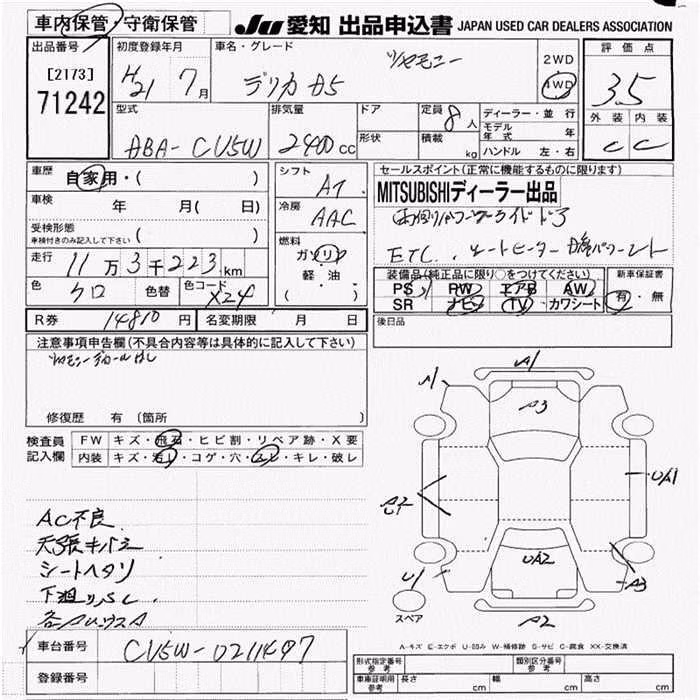 車内保管・守衛保管
JU 愛知 出品申込書 JAPAN USED CAR DEALERS ASSOCIATION
出品番号
[2173]
71242
初度登録年月
H21 7月
車名・グレード
デリカ D5
2WD
4WD
評価点
3.5
外装 内装
C C
型式
DBA-CV5W
排気量
2400cc
ドア
形状
定員 8人
積載 kg
ディーラー・並行
モデル年式 年
ハンドル 左・右
車歴
自家用・( )
車検 年 月( 日)
受検形態
車検付きのみ記入して下さい ( )
走行 11万3千223km
色 クロ 色替 色コード X24
シフト AT
冷房 AAC
燃料
ガソリン
軽・油
( )
セールスポイント(正常に機能するものに限ります)
MITSUBISHIディーラー出品
両側パワースライドドア
ETC、シートヒーター
装備品(純正品に限り○をつけてください)
PS PW エアB AW
SR ナビ TV カワシート
新車保証書
有・無
R券 14810円 名変期限 月 日
後日品
注意事項申告欄(不具合内容等は具体的に記入して下さい)
修復歴 有(箇所 )
検査員記入欄
FW キズ・飛石・ヒビ割・リペア跡・X要
内装 キズ・汚レ・コゲ・穴・スレ・キレ・破レ
AC不良
天張キバミ
シートヘタリ
下廻りS、C
A1
A1
A3
A2
U1
UA1
U1
UA2
A3
A2
スペア
A-キズ E-エクボ U-凹み W-補修跡 S-サビ C-腐食 XX-交換済
車台番号 CV5W-0211497
登録番号
形式指定番号 参考
類別区分番号 参考
車庫証明用 参考 長さ cm 幅 cm 高さ cm